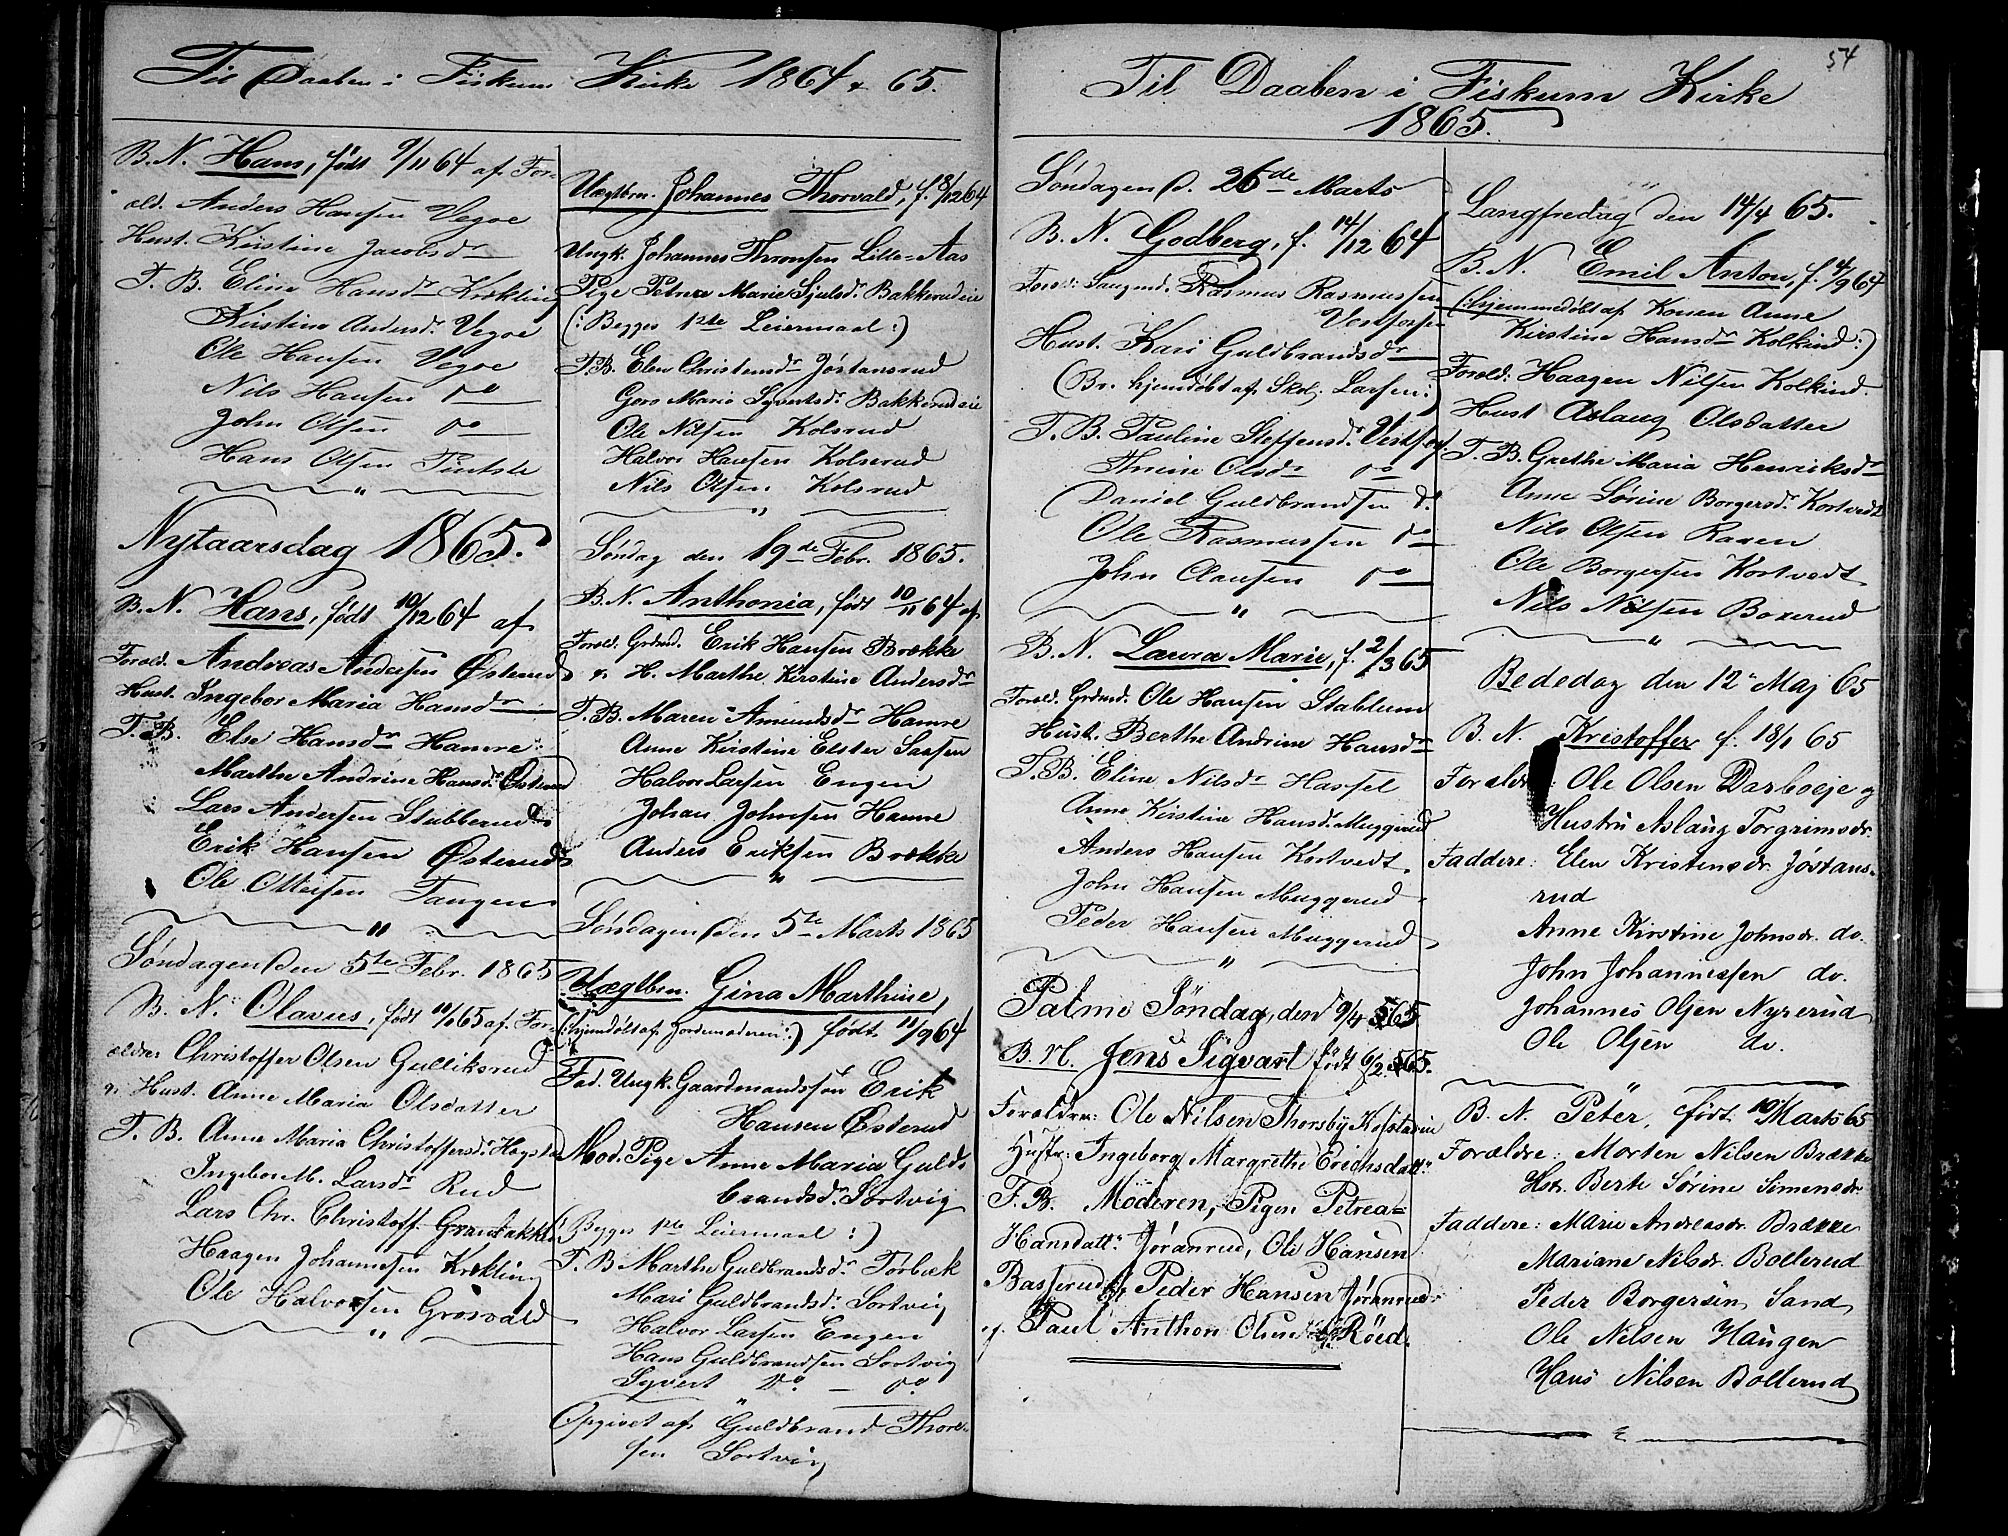 Til Daaben i Fiskum Kirke 1864 & 65.
B. N. Hans, født 9/11 64 af For-
æld. Anders Hansen Vegoe
Hust. Kirstine Jacobsdr
F. B. Eline Hansdr Krekling
Kirstine Andersdr. Vegoe
Ole Hansen Vegoe
Nils Hansen do
John Olsen do
Hans Olsen
"
Nytaarsdag 1865.
B. N. Hans, født 10/12 64 af
Foræld. Andreas Andersen Østerud
Hust. Ingebor Maria Hansdr
F. B. Else Hansdr Hamre
Marthe Andrine Hansdr. Østerud
Lars Andersen Stubberud
Erik Hansen Østerud
Ole Ottersen Tangen
"
Søndagen den 5te Febr. 1865
B. N: Olavus, født 11/1 65 af For-
ældre Christoffer Olsen Gulliksrud
& Hust. Anne Maria Olsdatter
F. B. Anne Maria Christoffersdr. Hogstad
Ingebor M. Larsdr Rud
Lars Chr. Christoff. Granbakken
Haagen Johannesen Krekling
Ole Halvorsen Grosvald
"
Uægtbrn. Johannes Thorvald, f. 8/12 64
Ungk. Johannes Thronsen Lille-Aas
Pige Petrea Marie Sjulsdr. Bakkerudeie
(: Begges 1ste Leiermaal :)
F. B. Elen Christensdr Jøstansrud
Goro Marie Syvertsdr. Bakkerudeie
Ole Nilsen Kolsrud
Halvor Hansen Kolsrud
Nils Olsen Kolsrud
"
Søndag den 19de Febr. 1865.
B. N. Anthonia, født 10/11 64 af
Foræld. Grdmd. Erik Hansen Brække
& H. Marthe Kirstine Andersdr
F. B. Maren Amundsdr Hamre
Anne Kirstine Elster Sassen
Halvor Larsen Engen
Johan Johnsen Hamre
Anders Eriksen Brække
"
Søndagen den 5te Marts 1865
Uægtbrn. Gina Marthine,
(: hjemdøbt af Jordemoderen :) født 11/9 64
Fad. Ungk. Gaardmandssøn Erik
Hansen Østerud
Mod. Pige Anne Maria Guld-
brandsdr. Sortvig
(: Begges 1ste Leiermaal :)
F. B. Marthe Guldbrandsdr. Torbæk
Mari Guldbrandsdr. Sortvig
Halvor Larsen Engen
Hans Guldbrandsen Sortvig
Syvert do — do
"
Opgivet af Guldbrand Thore-
sen Sortvig
54
Til Daaben i Fiskum Kirke
1865.
Søndagen d. 26de Marts
B. N. Godberg, f. 14/12 64
Foræld: Saugmd. Rasmus Rasmussen
Vestfosen
Hust. Kari Guldbrandsdr
(Br. hjemdøbt af Skol. Larsen :)
F. B. Pauline Steffensdr. Vestfos
Thrine Olsdr do
Daniel Guldbrandsen do
Ole Rasmussen do
John Clausen do
"
B. N. Laura Marie, f. 2/3 65
Foræld. Grdmd. Ole Hansen Stablum
Hust. Berthe Andrine Hansdr
F. B. Eline Nilsdr Hassel
Anne Kirstine Hansdr. Muggerud
Anders Hansen Kortvedt.
John Hansen Muggerud
Peder Hansen Muggerud
"
Palme Søndag, den 9/4 65
B. N. Jens Sigvart født 6/2 65.
Forældre: Ole Nilsen Thorsby
Hustr: Ingeborg Margrethe Erichsdatt:
F. B. Moderen, Pigen Petrea
Hansdatt: Jøranrud, Ole Hansen
Basserud, Peder Hansen Jøranrud
& Paul Anthon Olsen Røed.
Langfredag den 14/4 65.
B. N. Emil Anton, f. 4/9 64
(: hjemmedøbt af Konen Anne
Kirstine Hansdr Kolkind :)
Foræld: Haagen Nilsen Kolkind
Hust Aslaug Olsdatter
F. B. Grethe Maria Henriksdr
Anne Sørine Borgersdr. Kortvedt
Nils Olsen Raaen
Ole Borgersen Kortvedt
Nils Nilsen Boxerud
"
Bededag den 12 Maj 65
B. N. Kristoffer f. 18/1 65
Forældre: Ole Olsen Darboeje og
Hustru Aslaug Torgrimsdr.
Faddere: Elen Kristensdr. Jøstans-
rud
Anne Kirstine Johnsdr. do.
John Johannessen do.
Johannes Olsen Nyrerud
Ole Olsen do.
B. N. Peter, født 10 Marts 65
Forældre: Morten Nilsen Brække
Hst. Berte Sørine Simensdr
Faddere: Marie Andreasdr. Brække
Mariane Nilsdr. Bollerud
Peder Borgersen Sand
Ole Nilsen Haugen
Hans Nilsen Bollerud